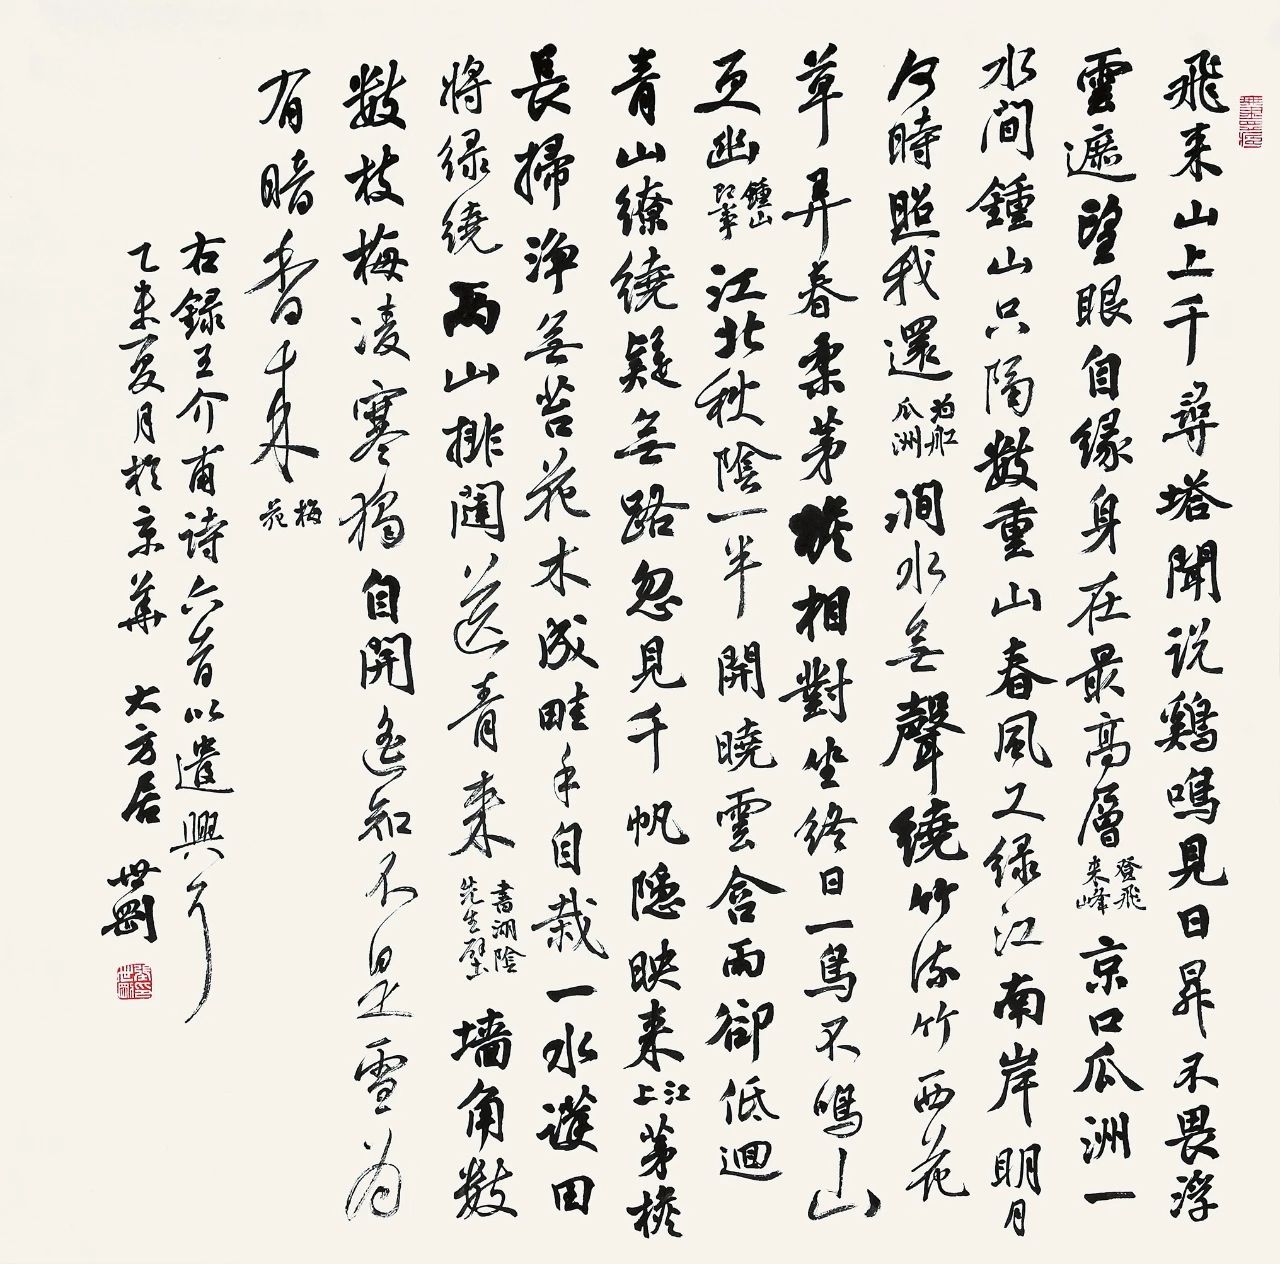 飛来山上千尋塔聞说鷄鳴見日昇不畏浮
雲遮望眼自缘身在最高層 登飛来峰 京口瓜洲一
水間鍾山只隔数重山春風又绿江南岸明月
何時照我還 泊船瓜洲 澗水無聲繞竹流竹西花
草弄春柔茅檐相對坐终日一鳥不鳴山
更幽 鍾山即事 江北秋陰一半開曉雲含雨卻低迴
青山繚繞疑無路忽見千帆隱映来 江上 茅檐
長掃淨無苔花木成畦手自栽一水護田
將绿繞兩山排闥送青来 書湖陰先生壁 墙角數
數枝梅凌寒獨自開遥知不是雪為
有暗香来 梅花
右録王介甫詩六首以遣興耳
乙未夏月於京華 大方居 世剛